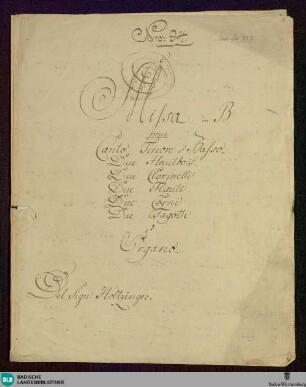 Missa in B
pour
Canto, Tenore è Basso.
Due Hautbois
Due Clarinetti
Due Flauti
Due Corni
Due Fagotti
è
Organo.
Del Sigr: Holtzinger.
BLB
BADISCHE
LANDESBIBLIOTHEK
Baden-Württemberg